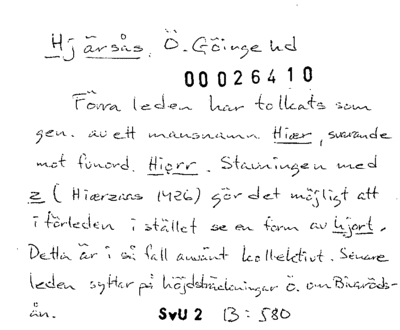 Hjärsås, Ö. Göinge hd
00026410
Förra leden har tolkats som
gen. av ett mansnamn Hiær, svarande
mot fvnord. Hiǫrr. Stavningen med
z (Hiærzaas 1426) gör det möjligt att
i förleden i stället se en form av hjort.
Detta är i så fall använt kollektivt. Senare
leden syftar på höjdsträckningar ö. om Bivaröds-
ån.
SvU 2 B: 580